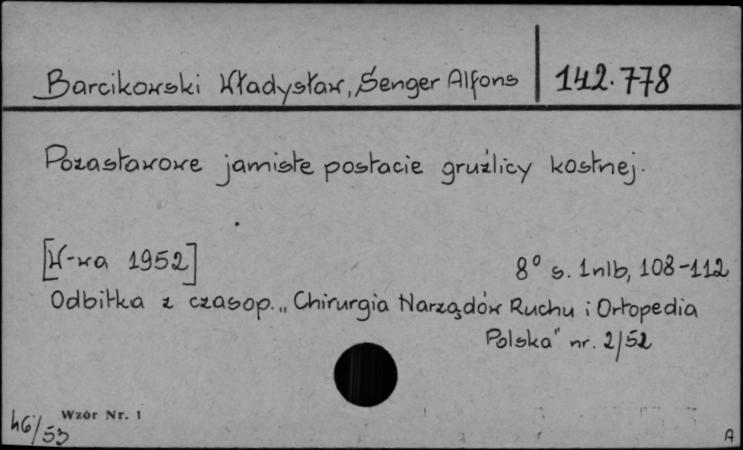 Barcikowski Władysław, Senger Alfons 142.778
Pozastawowe jamiste postacie gruźlicy kostnej.
[W-wa 1952]
8° s. 1nlb, 108-112
Odbitka z czasop. „Chirurgia Narządów Ruchu i Ortopedia
Polska" nr. 2/52
46/53
Wzór Nr. 1
A